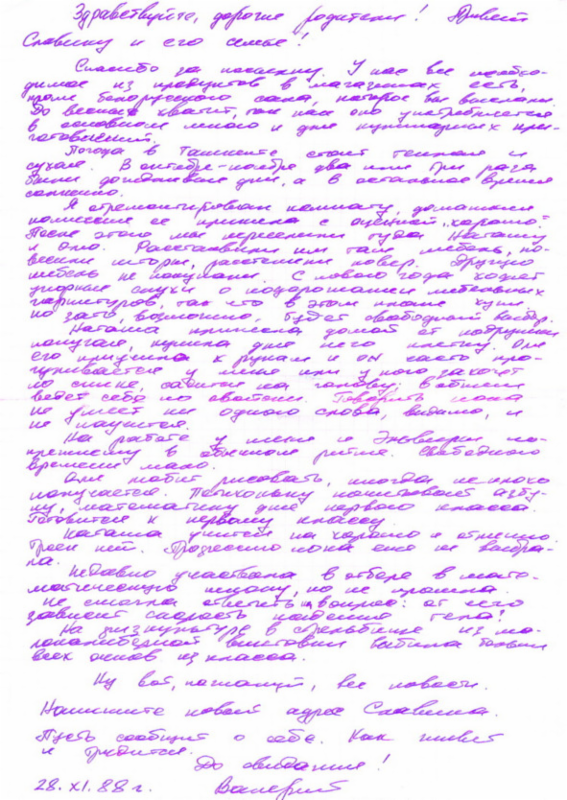 Здравствуйте, дорогие родители! Привет
Славику и его семье!
Спасибо за посылку. У нас все необхо-
димое из продуктов в магазинах есть,
кроме белорусского сала, которое вы выслали.
До весны хватит, так как оно употребляется
в основном много и для кулинарных при-
готовлений.
Погода в Ташкенте стоит теплая и
сухая. В октябре-ноябре два или три раза
были дождливые дни, а в остальное время
солнечно.
Я отремонтировал комнату, домашняя
комиссия ее приняла с оценкой „хорошо".
После этого мы переселили туда Наташу
и Олю. Расставили им там мебель, по-
весили шторы, расстелили ковер. Другую
мебель не покупали. С нового года ходят
упорные слухи о подорожании мебельных
гарнитуров, так что в этом плане хуже
но зато, возможно, будет свободный выбор.
Наташа принесла домой от подружки
попугая, купила для него клетку. Оля
его приучила к рукам и он часто про-
гуливается у меня или у кого захочет
по спине, садится на голову; в общем
ведет себя по свойски. Говорить пока
не умеет ни одного слова, видимо, и
не научится.
На работе у меня и по-
прежнему в обычном ритме. Свободного
времени мало.
Оля любит рисовать, иногда неплохо
получается. Потихоньку почитывает азбу-
ку, математику для первого класса.
Готовится к первому классу.
Наташа учится на хорошо и отлично.
Троек нет. Профессию пока еще не выбра-
ла.
Недавно участвовала в отборе в мате-
матическую школу, но не прошла.
Не смогла ответить на вопрос: от чего
зависит скорость падения тела!
На физкультуре в стрельбище из ма-
локалиберной винтовки выбила больше
всех очков из класса.
Ну вот, пожалуй, все новости.
Напишите новый адрес Славика.
Пусть сообщит о себе. Как живет
и трудится.
До свидания!
28.XI.88 г. Валерий